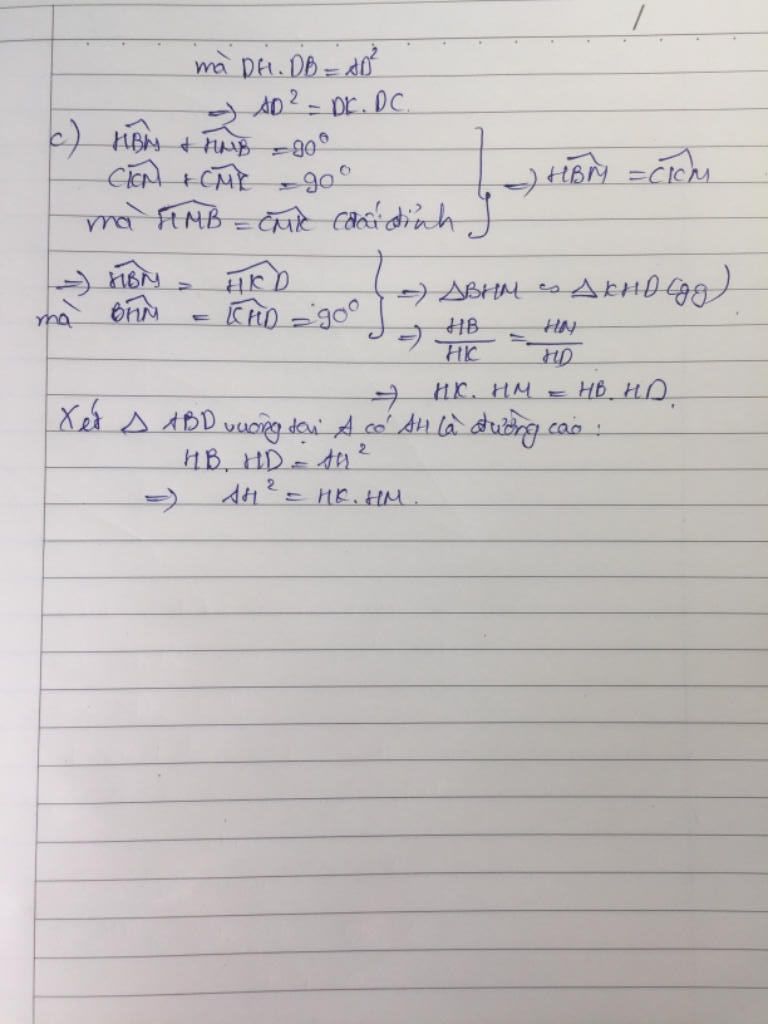 mà DH.DB = AD²
=> AD² = DK.DC.
c) HBM^ + HMB^ = 90°
CKM^ + CMK^ = 90°
mà HMB^ = CMK^ (đối đỉnh) } => HBM^ = CKM^
=> HBM^ = HKD^
mà BHM^ = KHD^ = 90° } => ΔBHM ∽ ΔKHD (gg)
=> HB/HK = HM/HD
=> HK.HM = HB.HD.
Xét Δ ABD vuông tại A có AH là đường cao :
HB.HD = AH²
=> AH² = HK.HM.